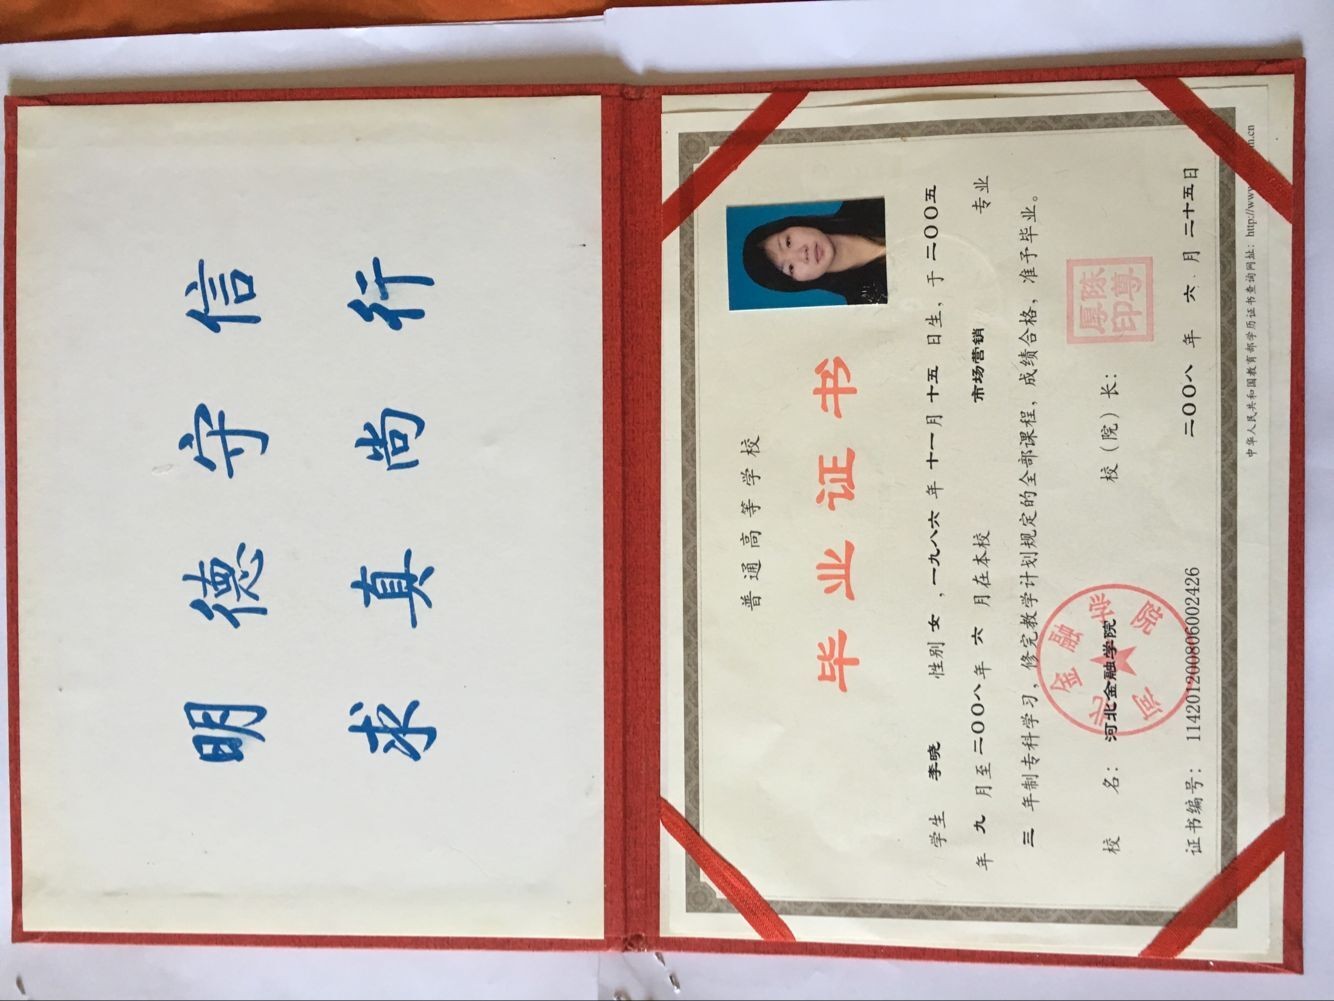 明德守信
求真尚行
普通高等学校
毕业证书
学生 李晓 性别女，一九八六年十一月十五日生，于二〇〇五
年九月至二〇〇八年六月在本校 市场营销 专业
三年制专科学习，修完教学计划规定的全部课程，成绩合格，准予毕业。
校 名：河北金融学院 校（院）长：
河北金融学院
陈尊厚印
证书编号：114201200806002426 二〇〇八年六月二十五日
中华人民共和国教育部学历证书查询网址：http://www